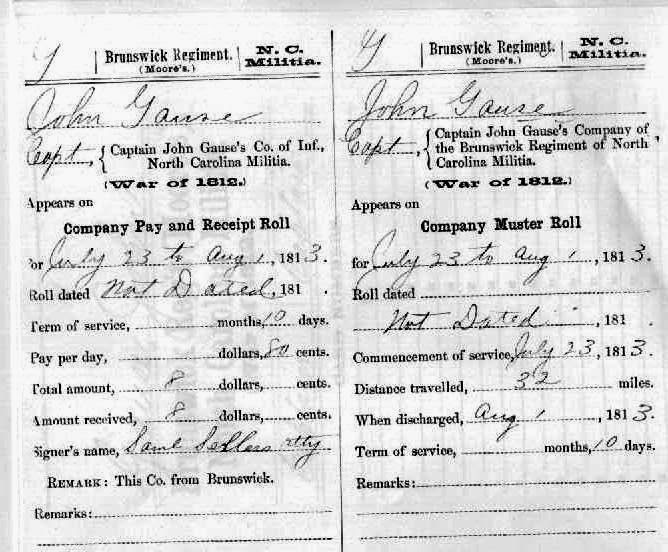 G
Brunswick Regiment.
(Moore's.)
N. C.
Militia.
John Gause
Capt, { Captain John Gause's Co. of Inf.,
North Carolina Militia.
(War of 1812.)
Appears on
Company Pay and Receipt Roll
for July 23 to Aug 1, 1813.
Roll dated Not Dated, 181 .
Term of service, months, 10 days.
Pay per day, dollars, 80 cents.
Total amount, 8 dollars, cents.
Amount received, 8 dollars, cents.
Signer's name, Saml Sellers atty
REMARK: This Co. from Brunswick.
Remarks:
G
Brunswick Regiment.
(Moore's.)
N. C.
Militia.
John Gause
Capt, { Captain John Gause's Company of
the Brunswick Regiment of North
Carolina Militia.
(War of 1812.)
Appears on
Company Muster Roll
for July 23 to Aug 1, 1813.
Roll dated
Not Dated, 181
Commencement of service, July 23, 1813.
Distance travelled, 32 miles.
When discharged, Aug 1, 1813.
Term of service, months, 10 days.
Remarks: